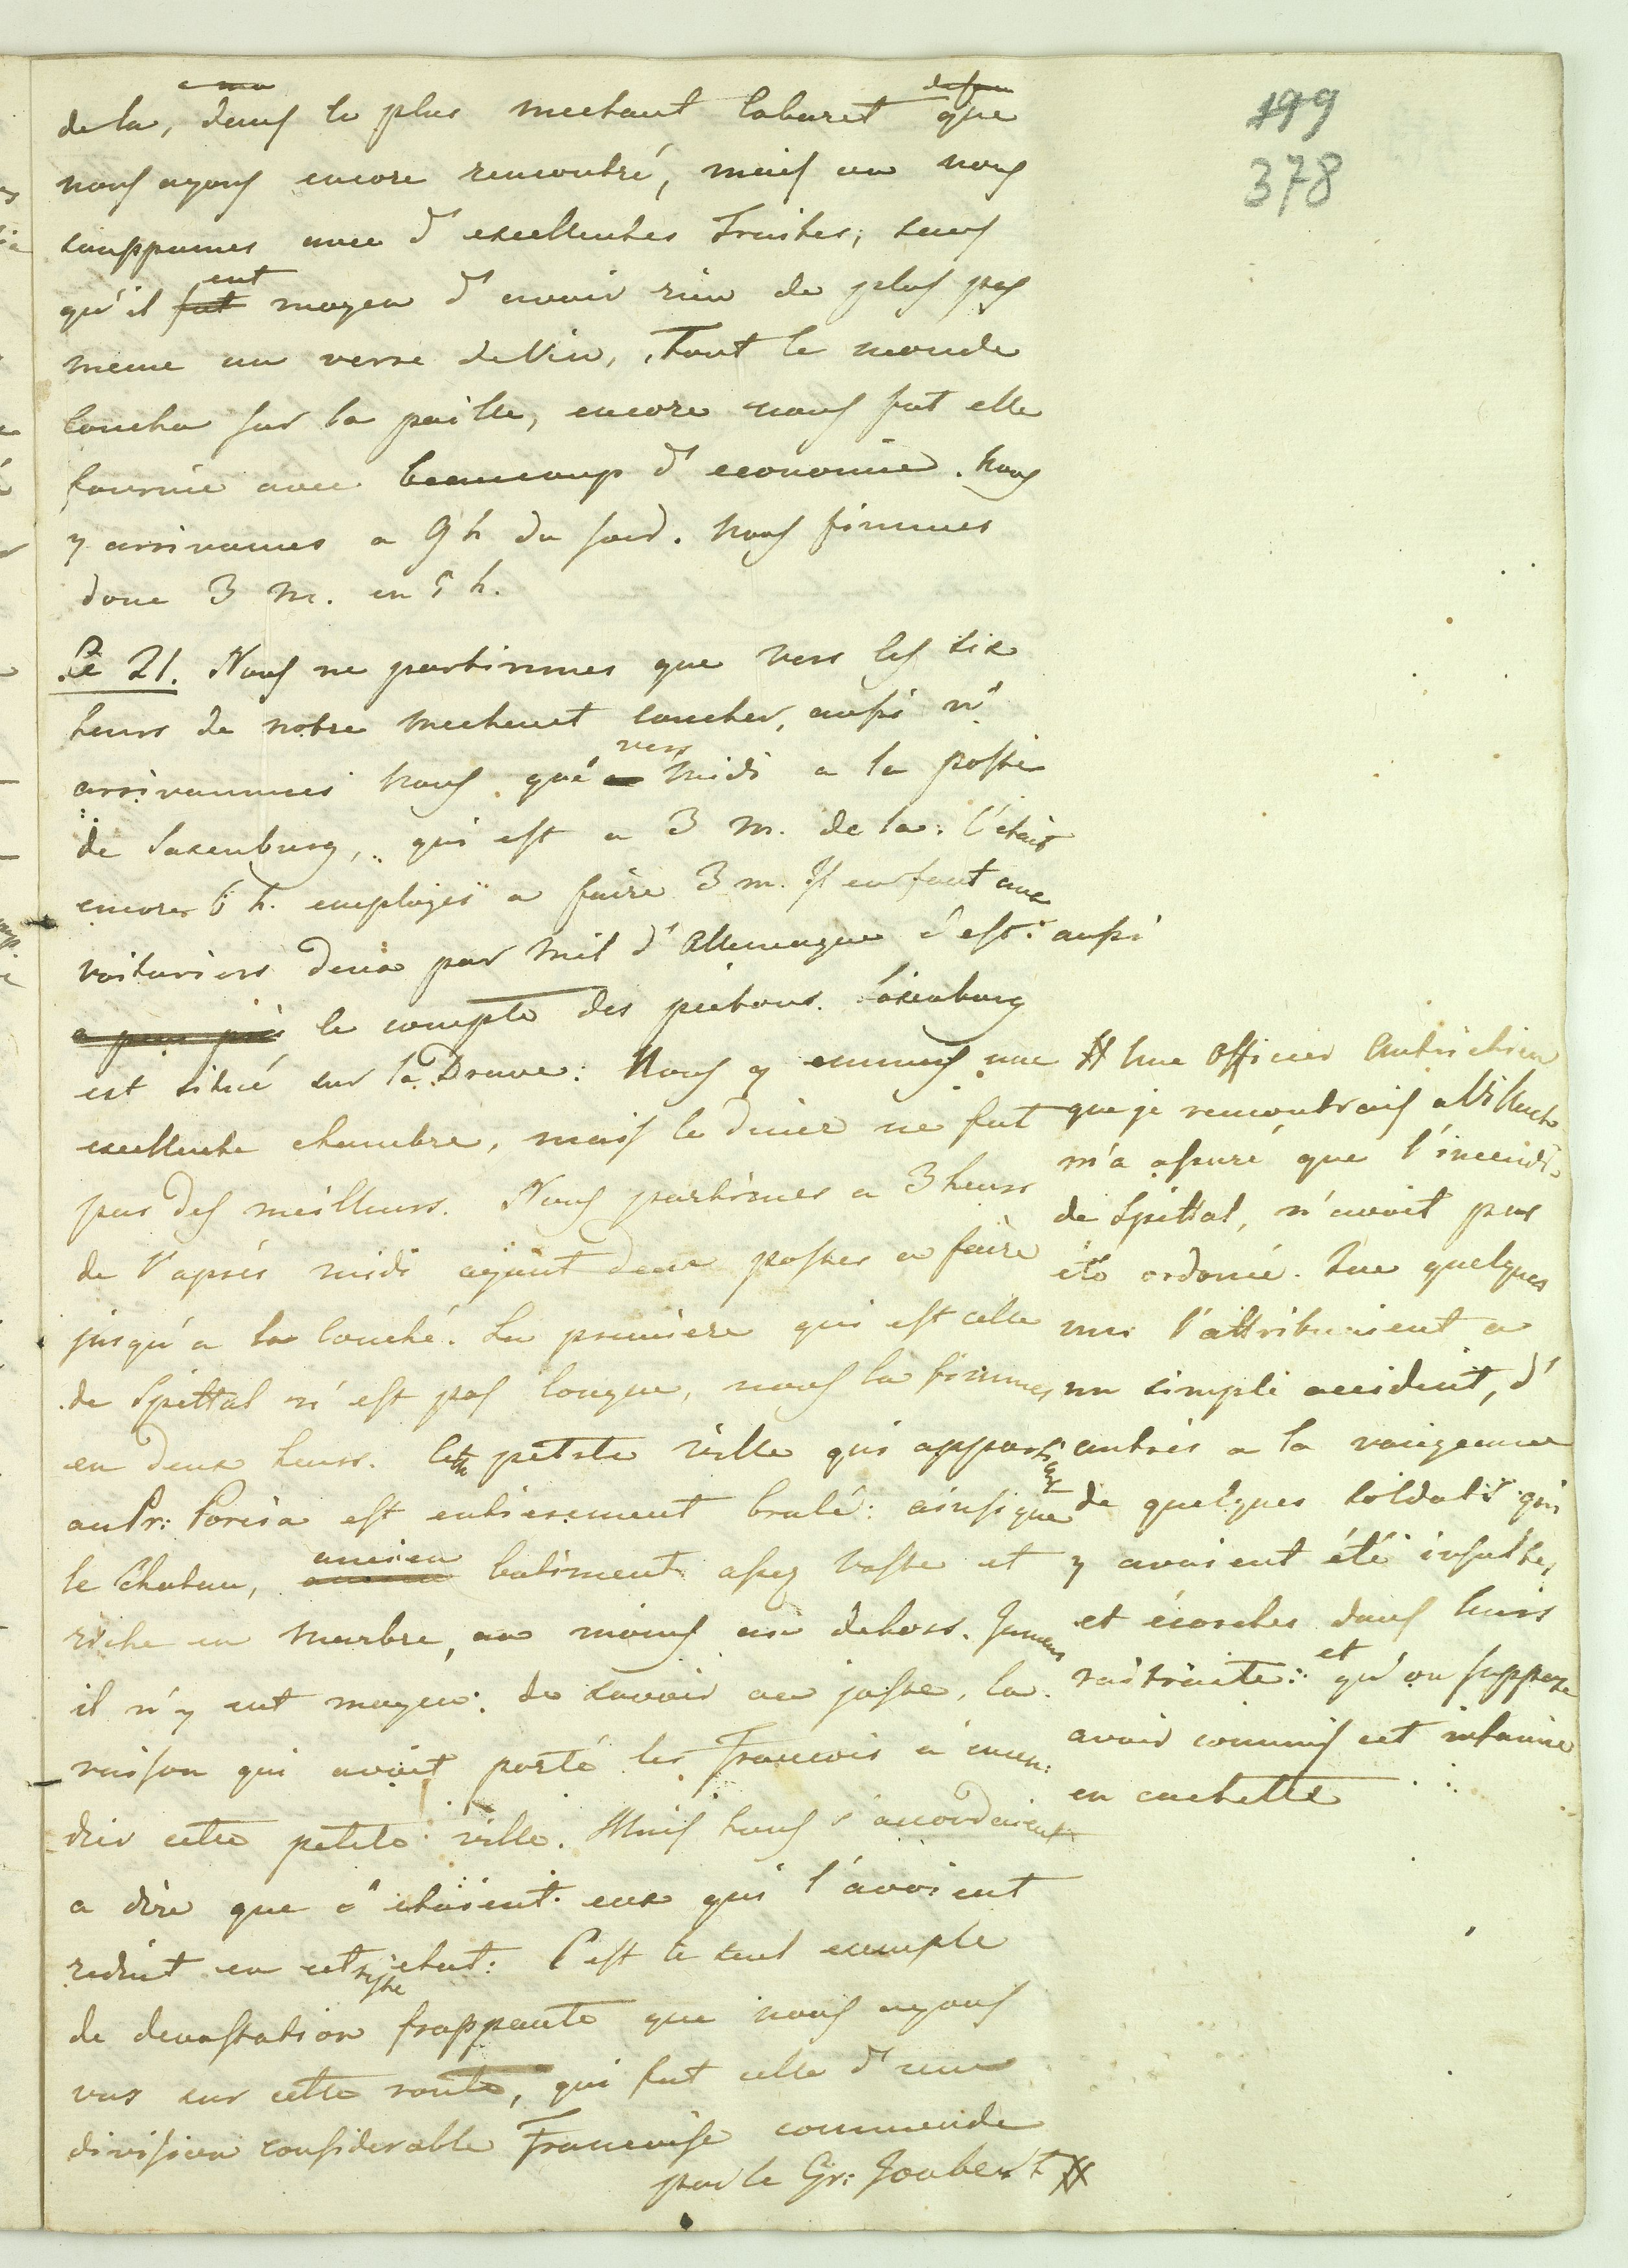 199
378
de la, dans le plus mechant Cabaret que
nous ayons encore rencontré, mais où nous
souppames avec d'excellentes Truites; sans
qu'il fut eut moyen d'avoir rien de plus pas
meme un verre de Vin, Tout le monde
coucha sur la paille, encore nous fut elle
fournie avec beaucoup d'economie. Nous
y arrivames a 9 h du soir. Nous finimes
donc 3 m. en 5 h.
Le 21. Nous ne partimmes que vers les six
heurs de notre mechant coucher, aussi n'
arrivammes nous qu'a vers Midi a la poste
de Saxenburg, qui est a 3 m. de la. C'etait
encore 6 h. employés a faire 3 m. Il en faut aux
voituriers deux par Mil d'Allemagne c'est aussi
a peu près le compte des pietons. Saxenburg
est situé sur la Drave: Nous y eumes une
excellente chambre, mais le diner ne fut
pas des meilleurs. Nous partimes a 3 heurs
de l'après midi ayant deux postes a faire
jusqu'a la couché. La premiere qui est celle
de Spittal n'est pas longue, nous la finimes
en deux heurs. Cette petite ville qui appartient
au Pr: Porcia est entierement brulé: ainsi que
le Chateau, ancien batiment assez vaste et
riche en marbre, au moins au dehors. Jamais
il n'y eut moyen de savoir au juste, la
raison qui avoit porté les Francois a incen:
dier cette petite ville. Mais tous s'accordaient
a dire que c'etaient eux qui l'avoient
reduit en cet triste etat: C'est le seul exemple
de devastation frappante que nous ayons
vus sur cette route, qui fut celle d'une
division considerable Francoise commende
par le Gr: Joubert #
# Une Officier Autrichien
que je rencontrais a Villach
m'a assuré que l'incendie
de Spittal, n'avoit pas
été ordonné. Que quelques
uns l'attribuaient a
un simple accident, d'
autres a la vangeance
de quelques soldats qui
y avaient été insultés
et écorchés dans leurs
raitraite: et qu'on suppose
avoir commis cet infamie
en cachette